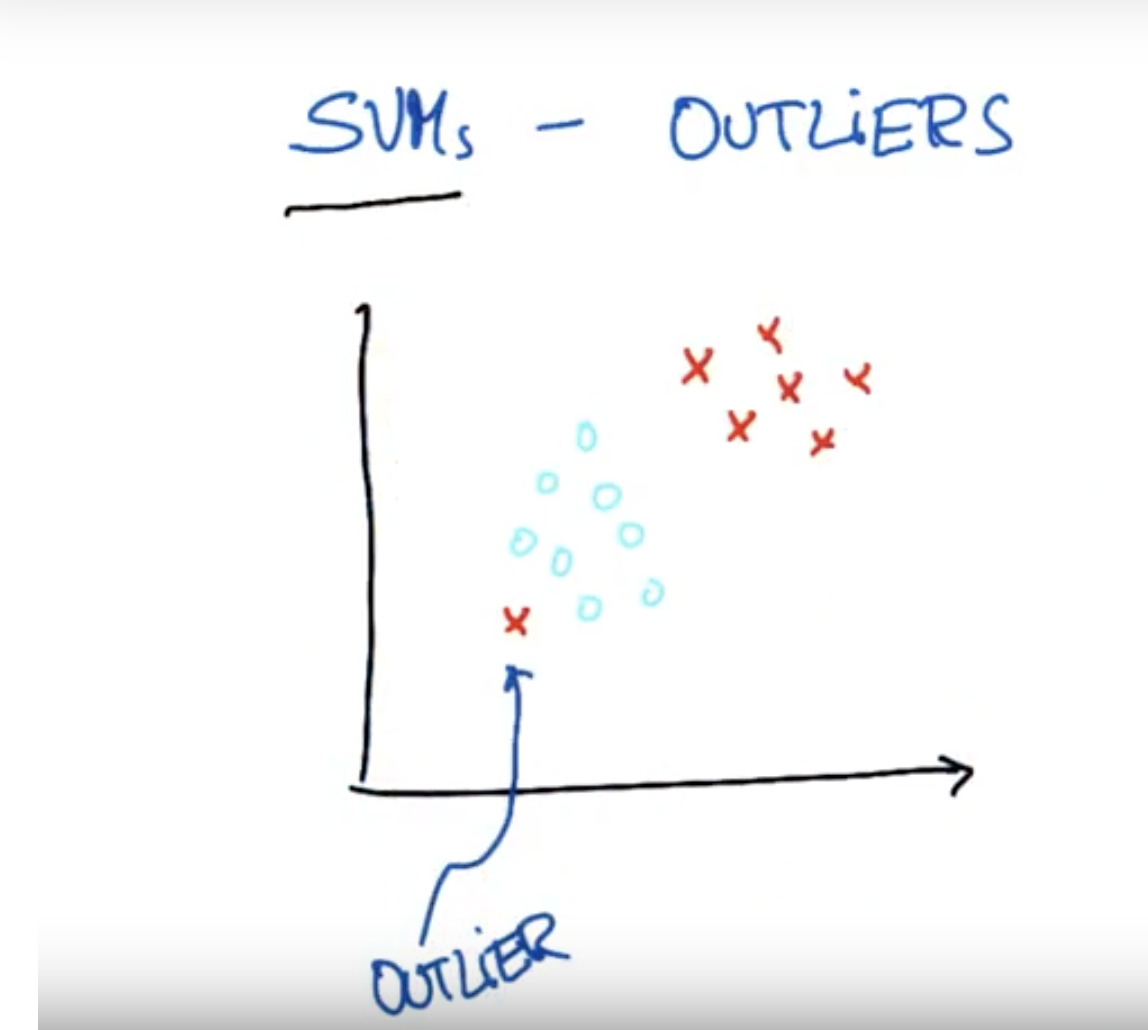 SVMs - OUTLiERS
OUTLiER